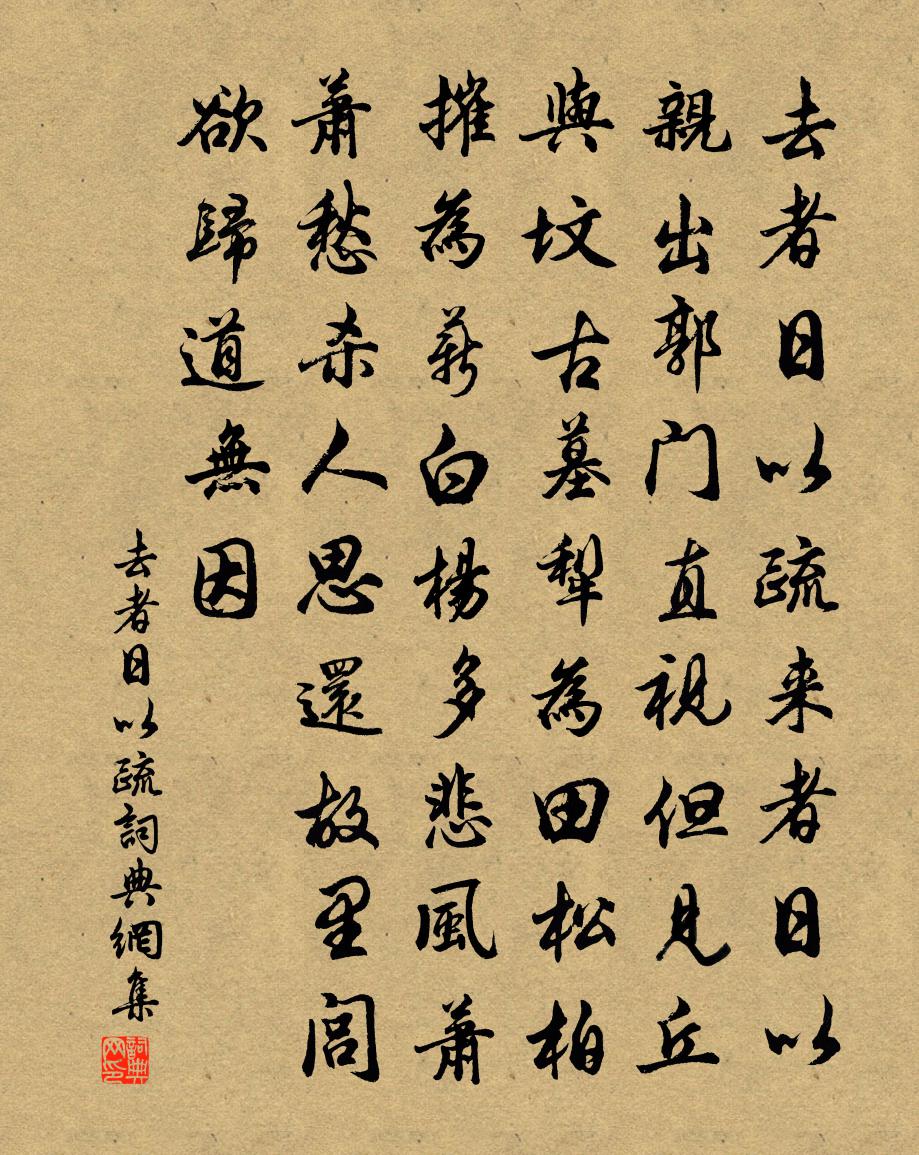 去者日以疏来者日以
親出郭门直視但見丘
與坟古墓犁為田松柏
摧為薪白楊多悲風萧
萧愁杀人思還故里闾
欲歸道無因
去者日以疏詞典網集
詞典网印